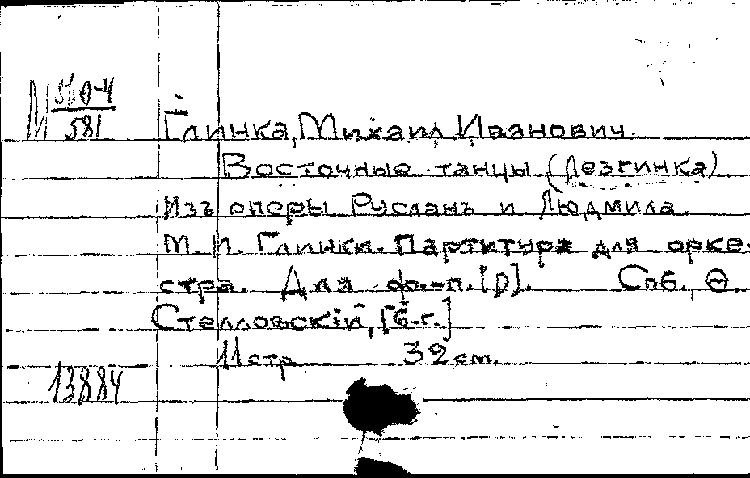 М 510-4
581
Глинка, Михаил Иванович.
Восточные танцы (Лезгинка)
Изъ оперы Русланъ и Людмила
М. И. Глинки. Партитура для орке-
стра. Для фо.-п. [р]. Спб. Ѳ.
Стелловскій, [б.г.]
11 стр 32 см.
13884